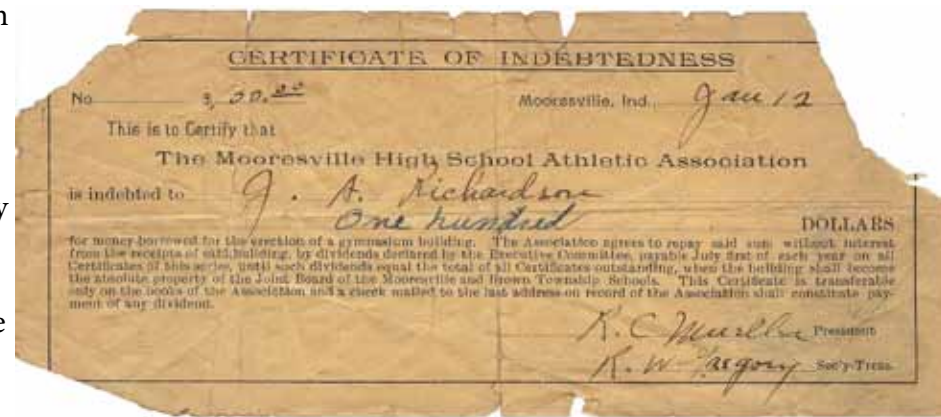 n
CERTIFICATE OF INDEBTEDNESS
No. $, 00.00 Mooresville, Ind., Jan 12
This is to Certify that
The Mooresville High School Athletic Association
is indebted to J. A. Richardson
One hundred DOLLARS
y
for money borrowed for the erection of a gymnasium building. The Association agrees to repay said sum without interest
from the receipts of said building, by dividends declared by the Executive Committee, payable July first of each year on all
Certificates of this series, until such dividends equal the total of all Certificates outstanding, when the building shall become
the absolute property of the Joint Board of the Mooresville and Brown Township Schools. This Certificate is transferable
only on the books of the Association and a check mailed to the last address on record of the Association shall constitute pay-
ment of any dividend.
e
R. C. President
R. W. Sec'y-Treas.